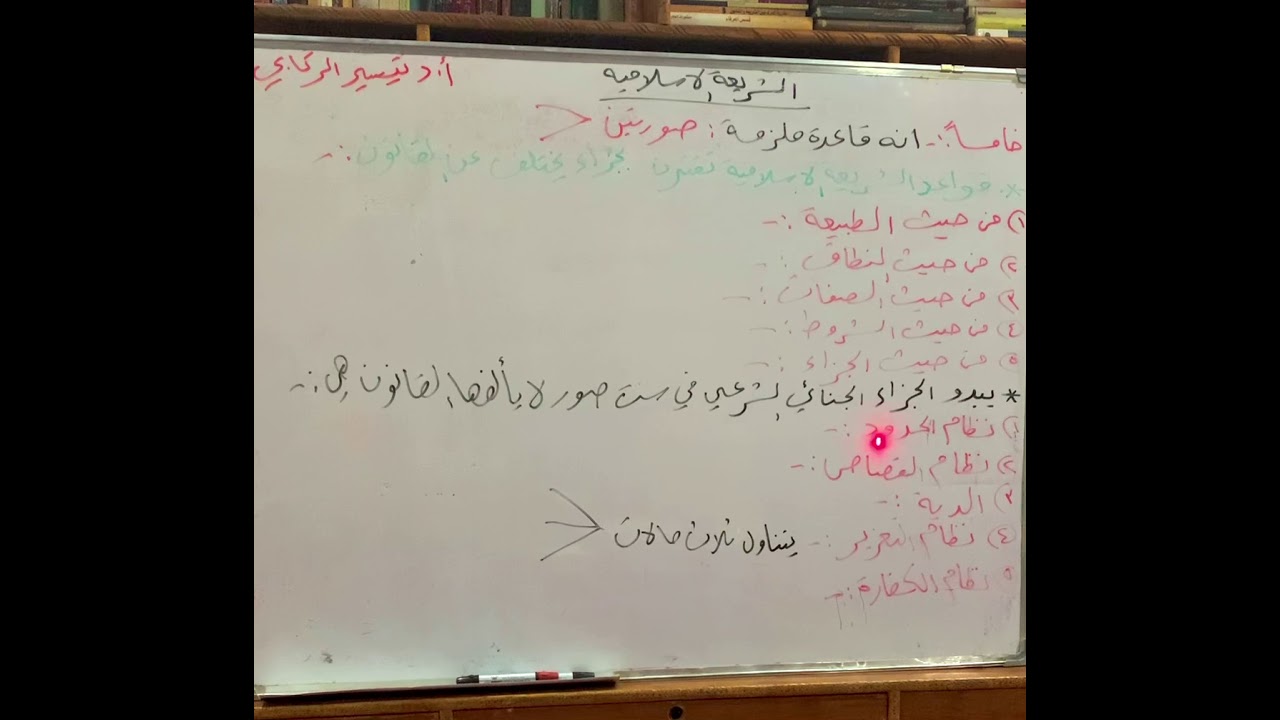 الشريعة الاسلامية
أ.د تيسير الركابي
خامساً :- انه قاعدة ملزمة : صورتين
* قواعد الشريعة الاسلامية تقترن بجزاء يختلف عن القانون :-
١) من حيث الطبيعة :-
٢) من حيث النطاق :-
٣) من حيث الصفات :-
٤) من حيث الشروط :-
٥) من حيث الجزاء :-
* يبدو الجزاء الجنائي الشرعي في ست صور لا يألفها القانون هي :-
١) نظام الحدود :-
٢) نظام القصاص :-
٣) الدية :-
٤) نظام التعزير :- يتناول ثلاث حالات
٥) نظام الكفارة :-